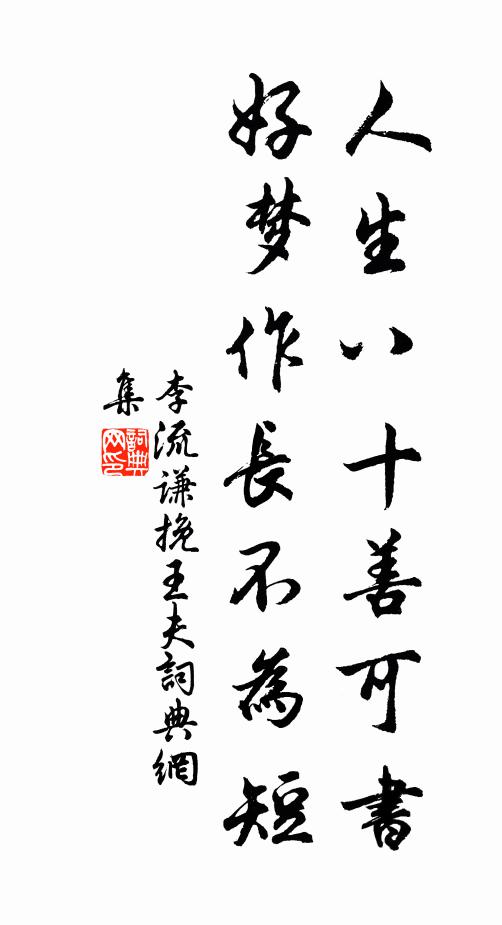 人生八十善可書
好梦作長不為短
李流谦挽王夫詞典網
集
詞典
网印